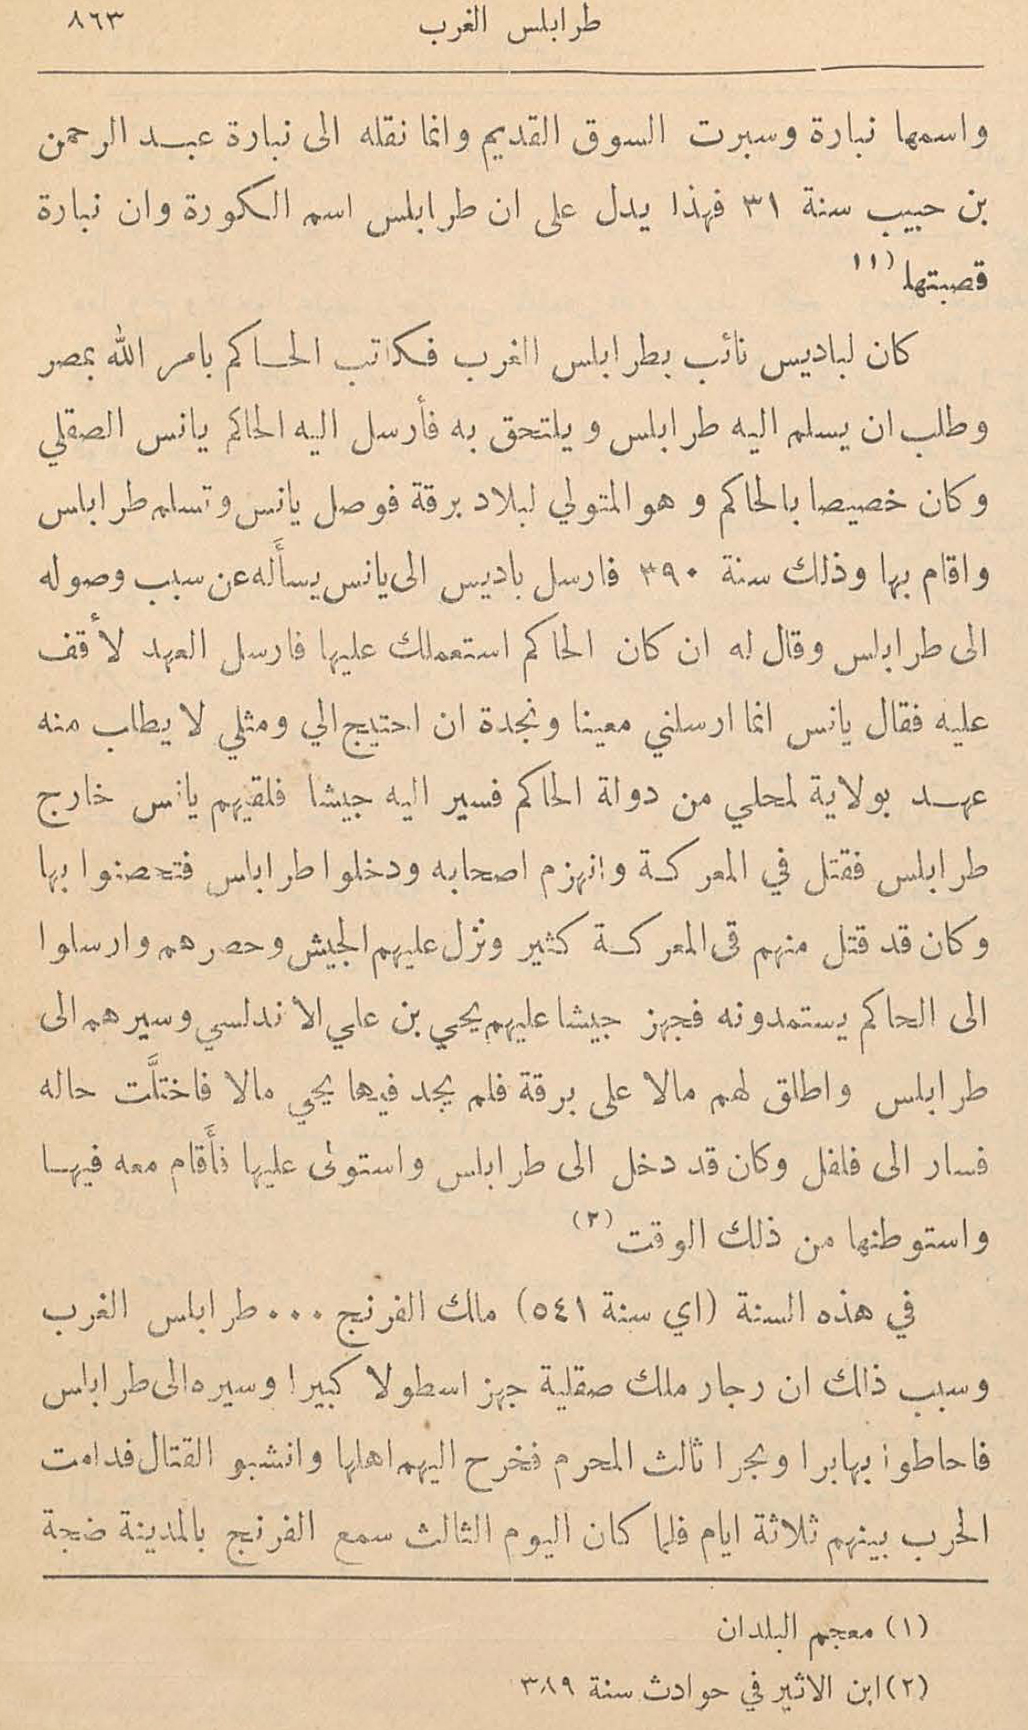 طرابلس الغرب ٨٦٣
واسمها نبارة وسبرت السوق القديم وانما نقله الى نبارة عبد الرحمن
بن حبيب سنة ٣١ فهذا يدل على ان طرابلس اسم الكورة وان نبارة
قصبتها (١)
كان لباديس نائب بطرابلس الغرب فكاتب الحاكم بامر الله بمصر
وطلب ان يسلم اليه طرابلس ويلتحق به فأرسل اليه الحاكم يانس الصقلي
وكان خصيصا بالحاكم وهو المتولي لبلاد برقة فوصل يانس وتسلم طرابلس
واقام بها وذلك سنة ٣٩٠ فارسل باديس الى يانس يسأَله عن سبب وصوله
الى طرابلس وقال له ان كان الحاكم استعملك عليها فارسل العهد لأقف
عليه فقال يانس انما ارسلني معينا ونجدة ان احتيج الي ومثلي لا يطلب منه
عهد بولاية لمحلي من دولة الحاكم فسير اليه جيشا فلقيهم يانس خارج
طرابلس فقتل في المعركة وانهزم اصحابه ودخلوا طرابلس فتحصنوا بها
وكان قد قتل منهم قى المعركة كثير ونزل عليهم الجيش وحصرهم وارسلوا
الى الحاكم يستمدونه فجهز جيشا عليهم يحيى بن علي الأندلسي وسيرهم الى
طرابلس واطلق لهم مالا على برقة فلم يجد فيها يحيى مالا فاختلَّت حاله
فسار الى فلفل وكان قد دخل الى طرابلس واستولى عليها فأَقام معه فيها
واستوطنها من ذلك الوقت (٢)
في هذه السنة (اي سنة ٥٤١) ملك الفرنج ٠٠٠ طرابلس الغرب
وسبب ذلك ان رجار ملك صقلية جهز اسطولا كبيرا وسيره الى طرابلس
فاحاطوا بها برا وبحرا ثالث المحرم فخرج اليهم اهلها وانشبو القتال فدامت
الحرب بينهم ثلاثة ايام فلما كان اليوم الثالث سمع الفرنج بالمدينة ضجة
(١) معجم البلدان
(٢) ابن الاثير في حوادث سنة ٣٨٩